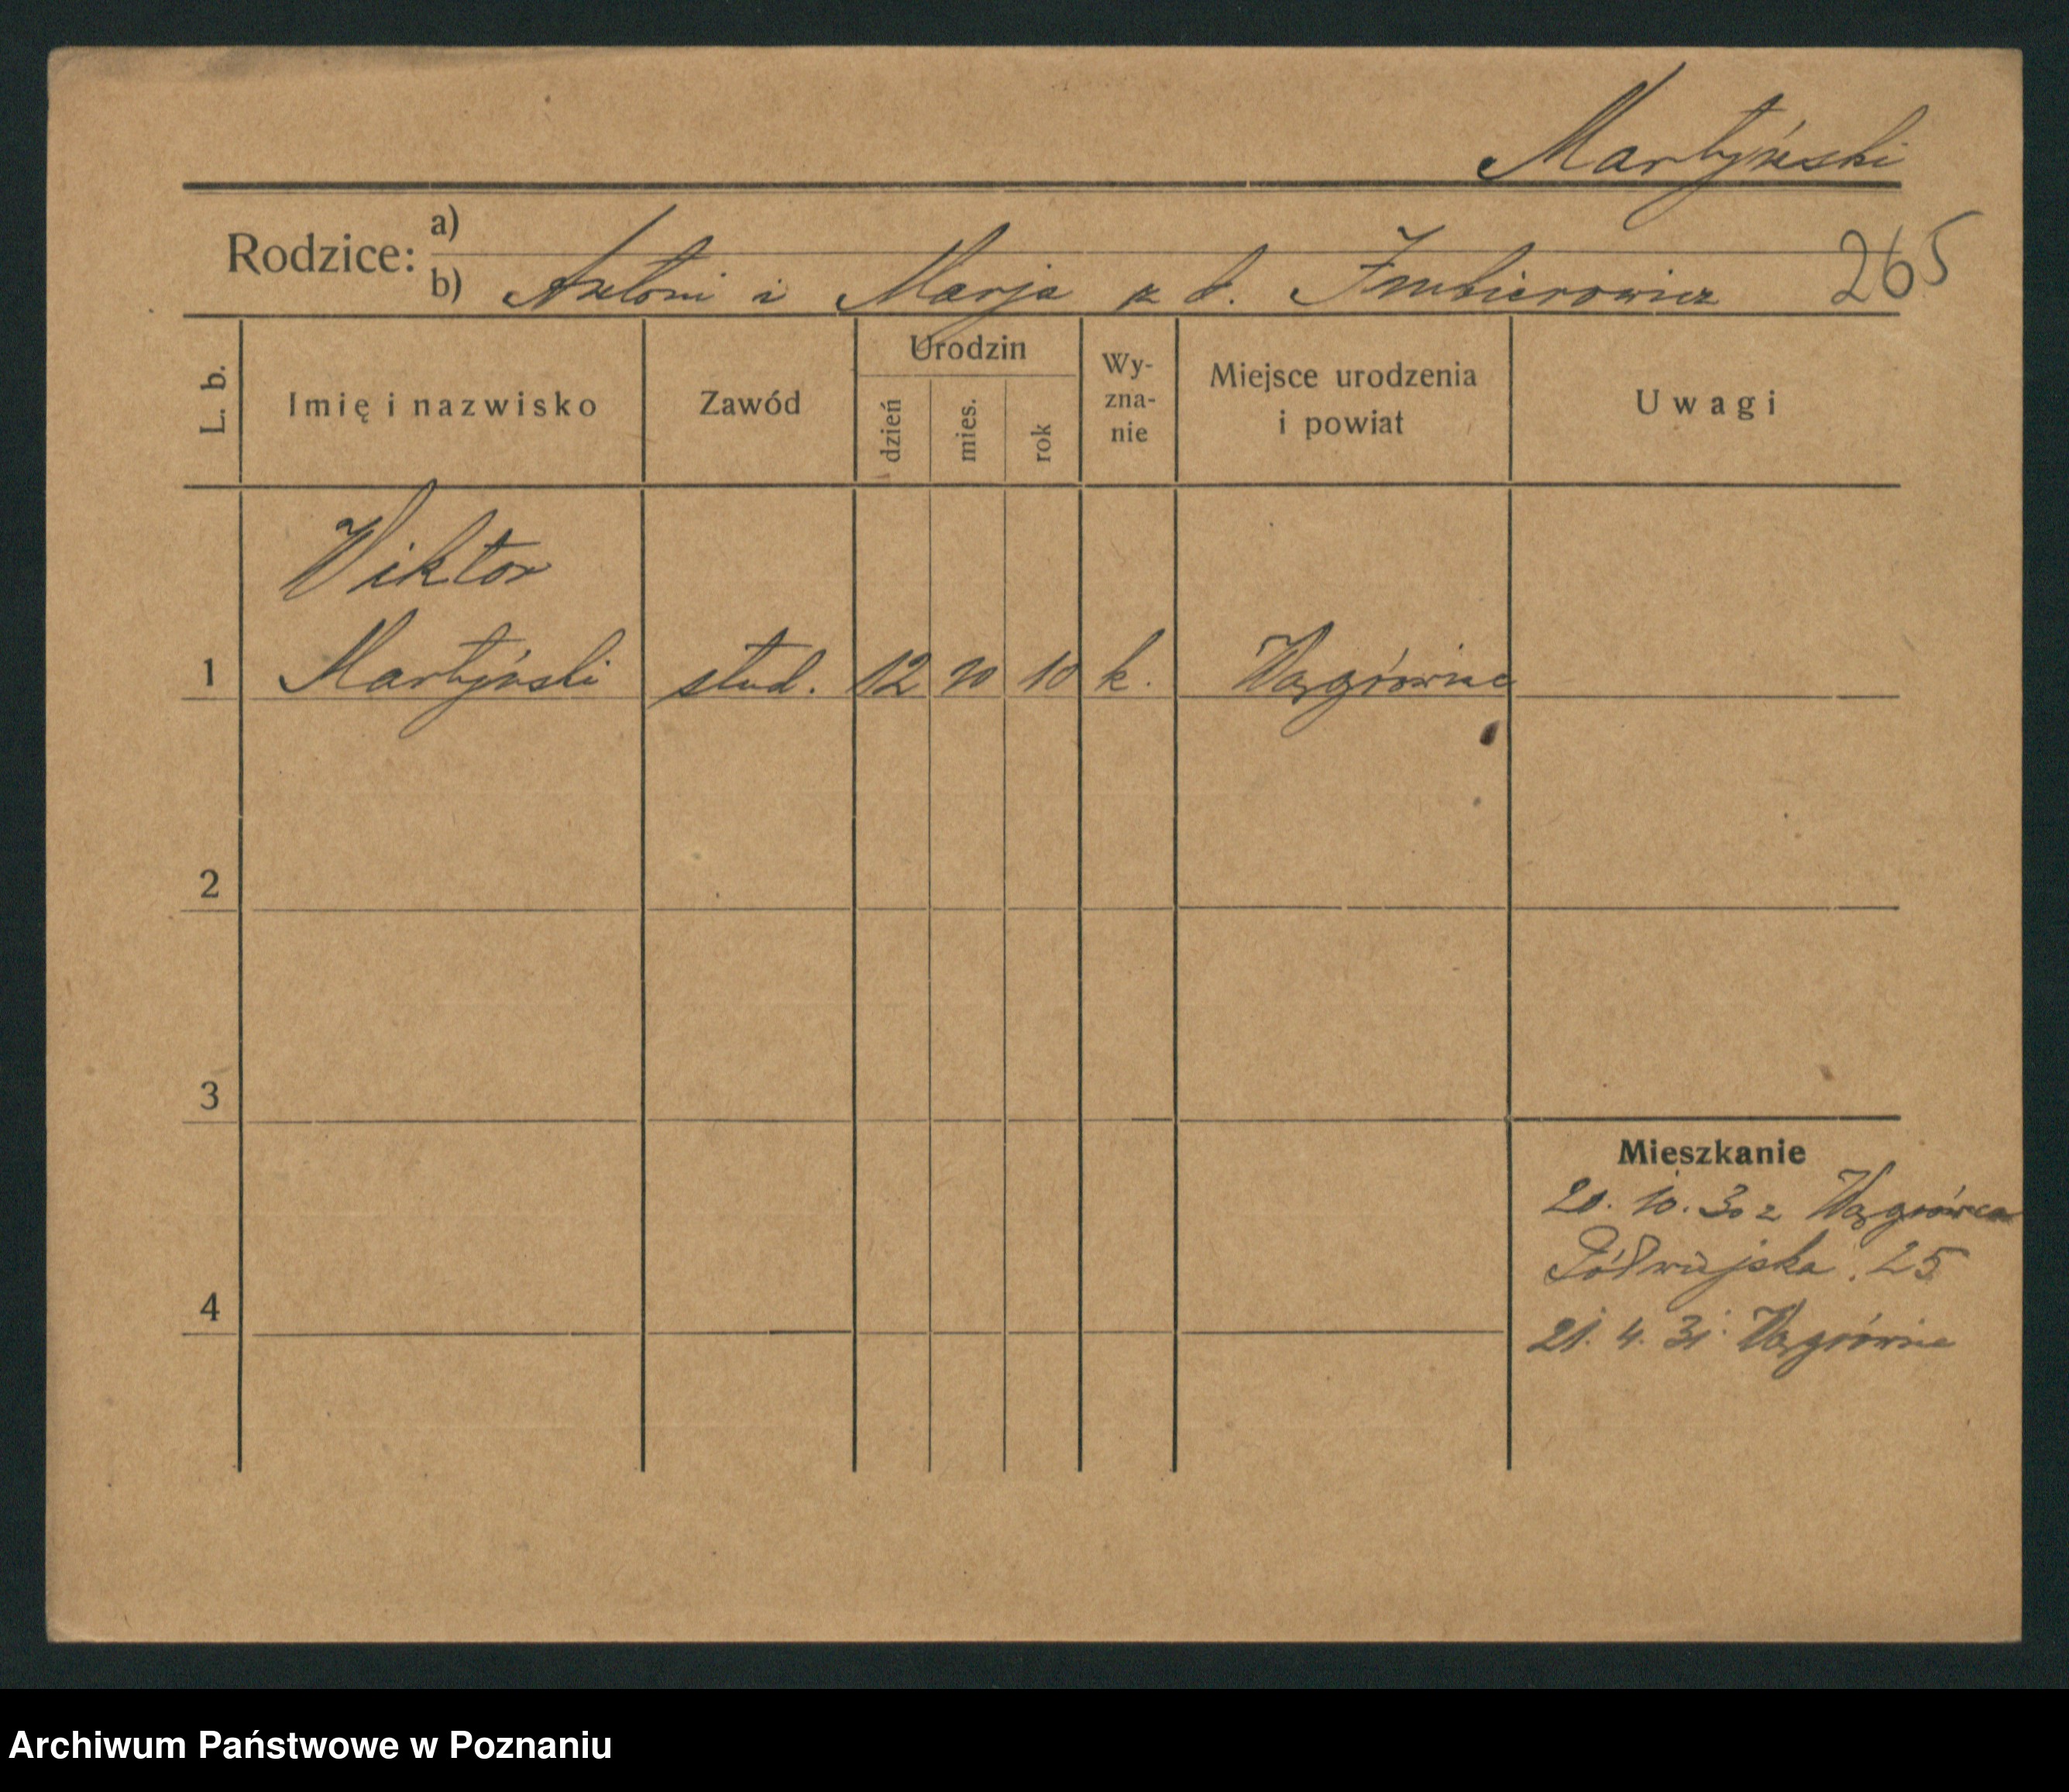 Martyński
Rodzice: a)
b) Antoni i Marja z d. Imbierowicz 265
L. b.
Imię i nazwisko
Zawód
Urodzin
dzień
mies.
rok
Wy-
zna-
nie
Miejsce urodzenia
i powiat
Uwagi
Wiktor
1 Martyński stud. 12 10 10 k. Wągrówiec
2
3
4
Mieszkanie
20. 10. 30 z Wągrówca
Półwiejska 25
21. 4. 31. Wągrówiec
Archiwum Państwowe w Poznaniu